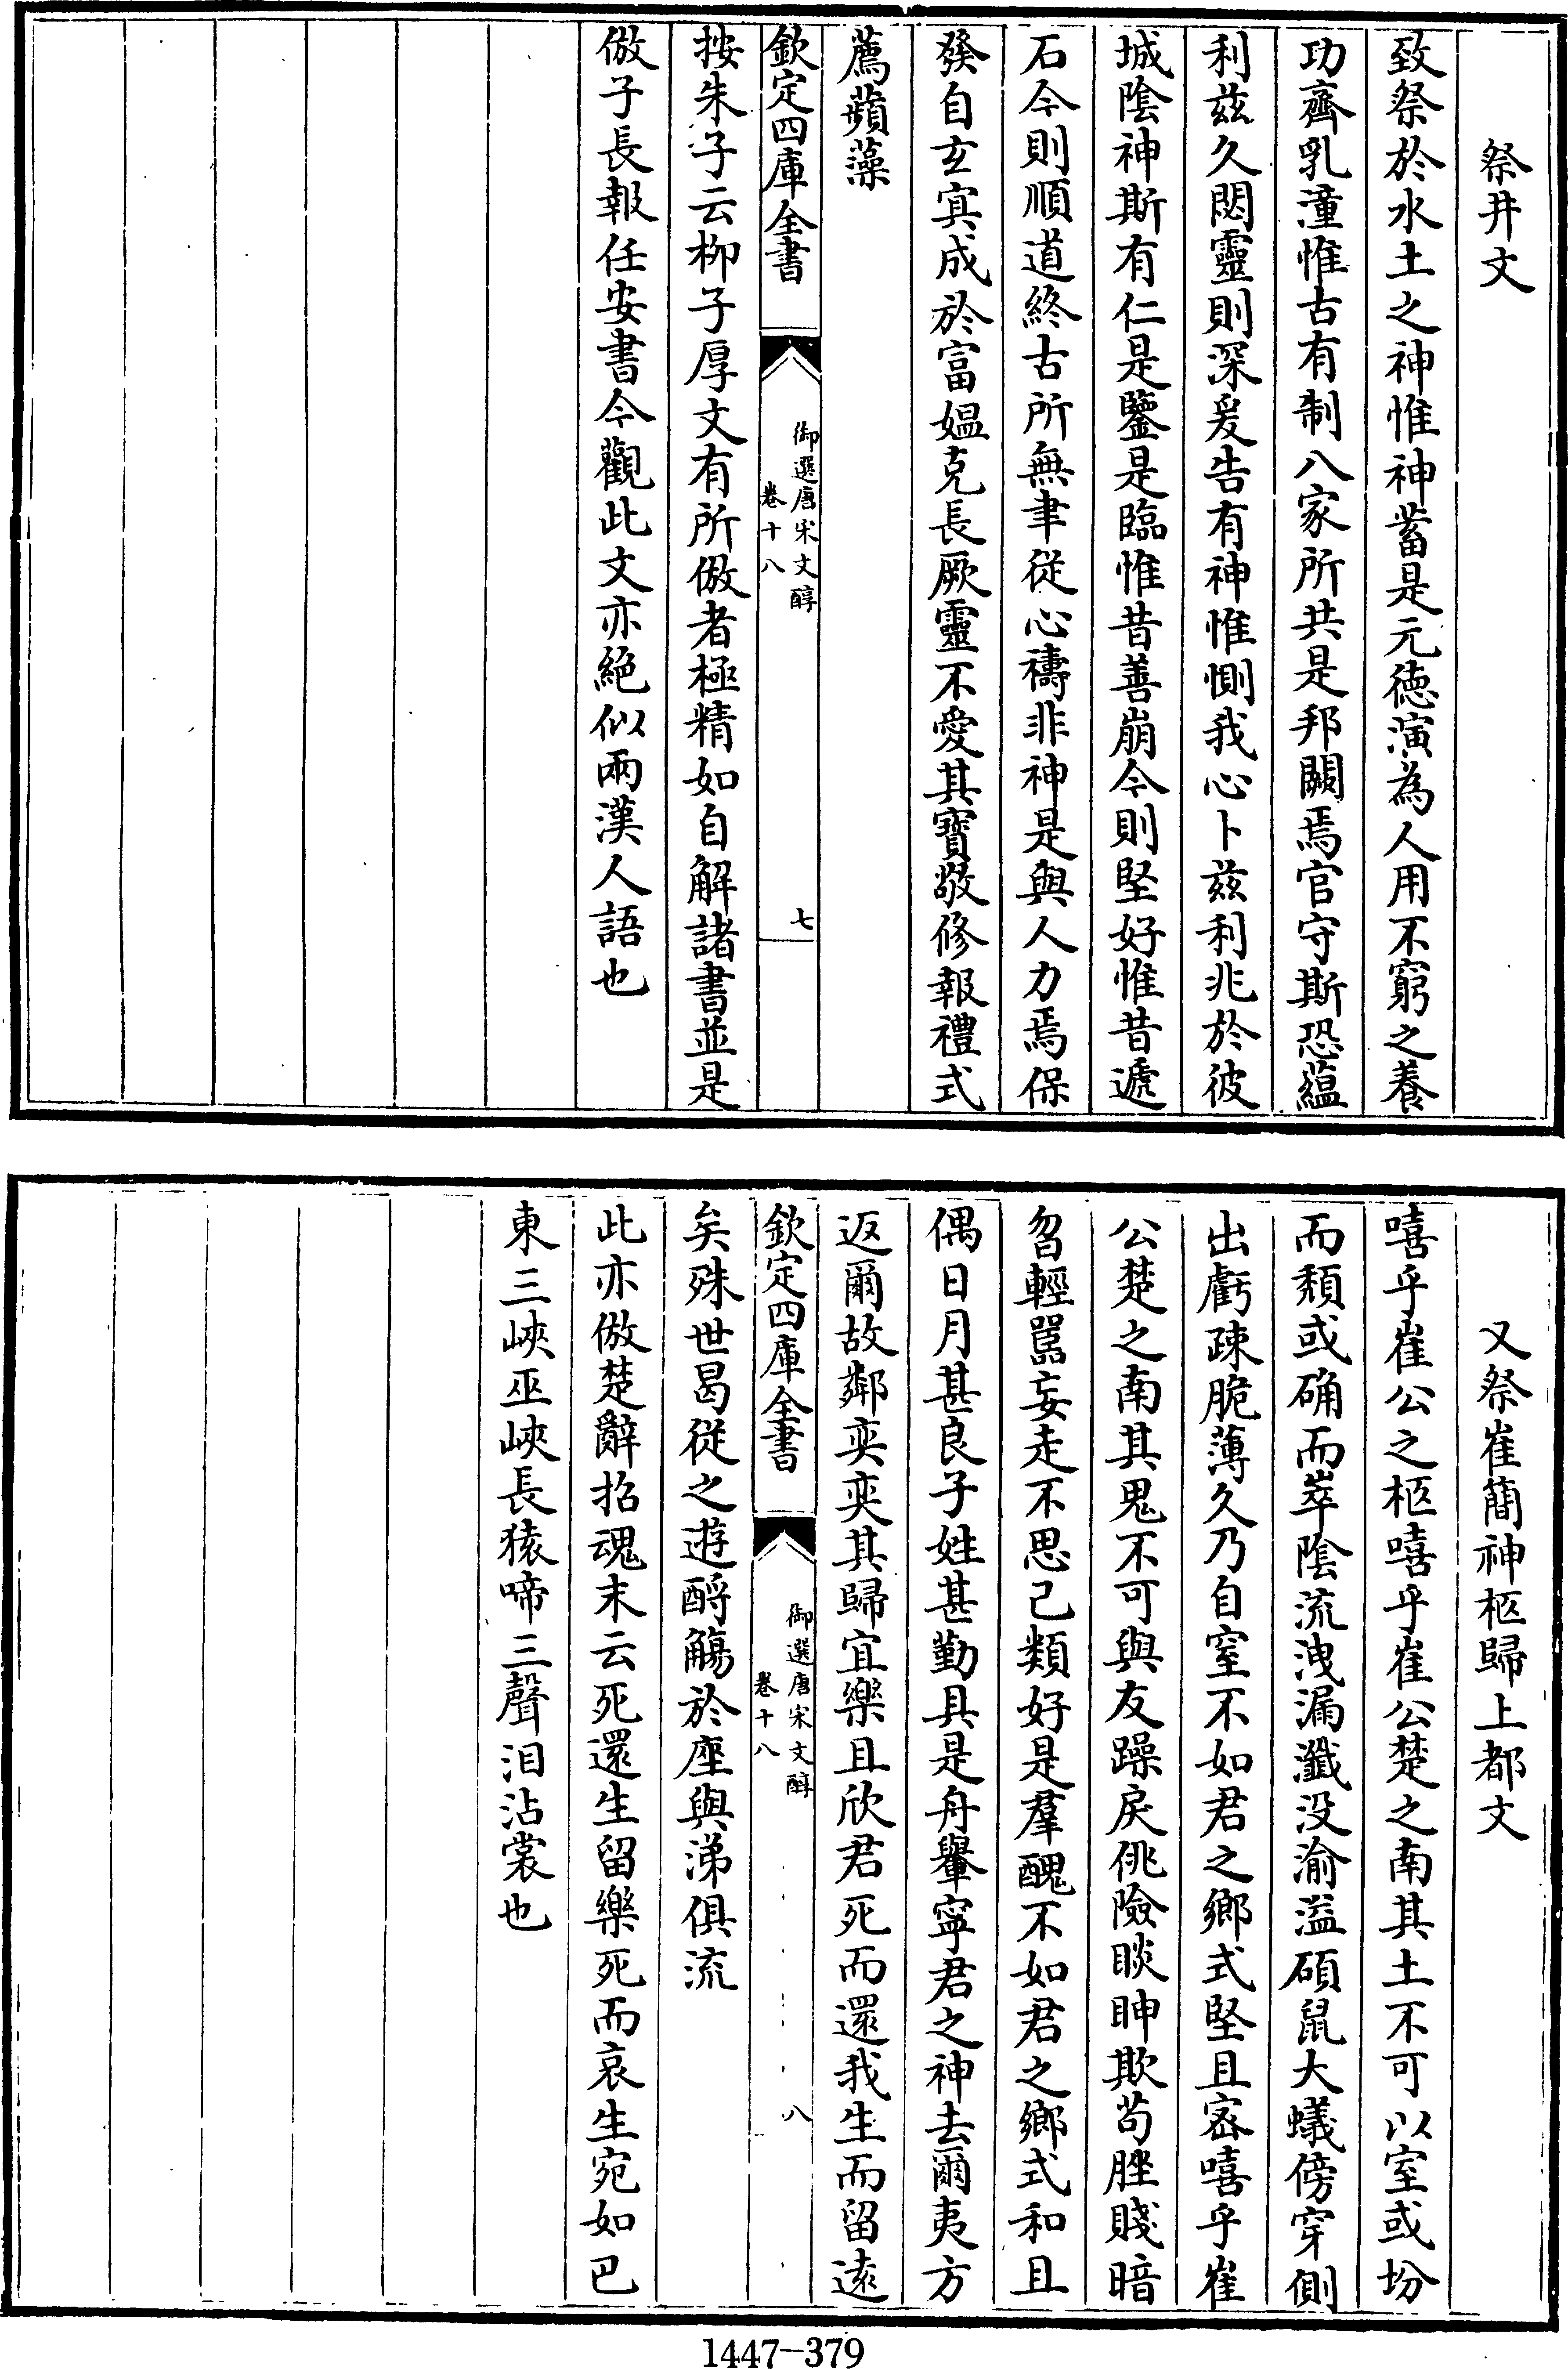 祭井文
致祭於水土之神惟神蓄是元德演為人用不窮之養
功齊乳湩惟古有制八家所共是邦闕焉官守斯恐蘊
利兹久閟靈則深爰告有神惟惻我心卜兹利兆於彼
城隂神斯有仁是鑒是臨惟昔善崩今則堅好惟昔遞
石今則順道終古所無聿從心禱非神是與人力焉保
發自玄冥成於富媼克長厥靈不愛其寶敬修報禮式
薦蘋藻
欽定四庫全書
御選唐宋文醇
卷十八
七
按朱子云栁子厚文有所倣者極精如自解諸書並是
倣子長報任安書今觀此文亦絕似兩漢人語也
又祭崔簡神柩歸上都文
嘻乎崔公之柩嘻乎崔公楚之南其土不可以室或坋
而頹或确而崒隂流洩漏瀸没渝溢碩鼠大蟻傍穿側
出虧疎脆薄久乃自窒不如君之鄉式堅且宻嘻乎崔
公楚之南其鬼不可與友躁戾佻險睒眒欺苟脞賤暗
曶輕嚚妄走不思己類好是羣醜不如君之鄉式和且
偶日月甚良子姓甚勤具是舟轝寧君之神去爾夷方
返爾故鄰奕奕其歸宜樂且欣君死而還我生而留逺
矣殊世曷從之遊酹觴於座與涕俱流
欽定四庫全書
御選唐宋文醇
卷十八
八
此亦倣楚辭招魂末云死還生留樂死而哀生宛如巴
東三峽巫峽長猿啼三聲泪沾裳也
1447-379